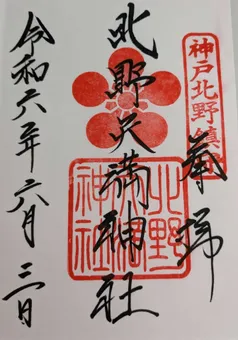 神戸北野鎮
奉拝
北野天満神社
北野天満神社
令和六年六月三日